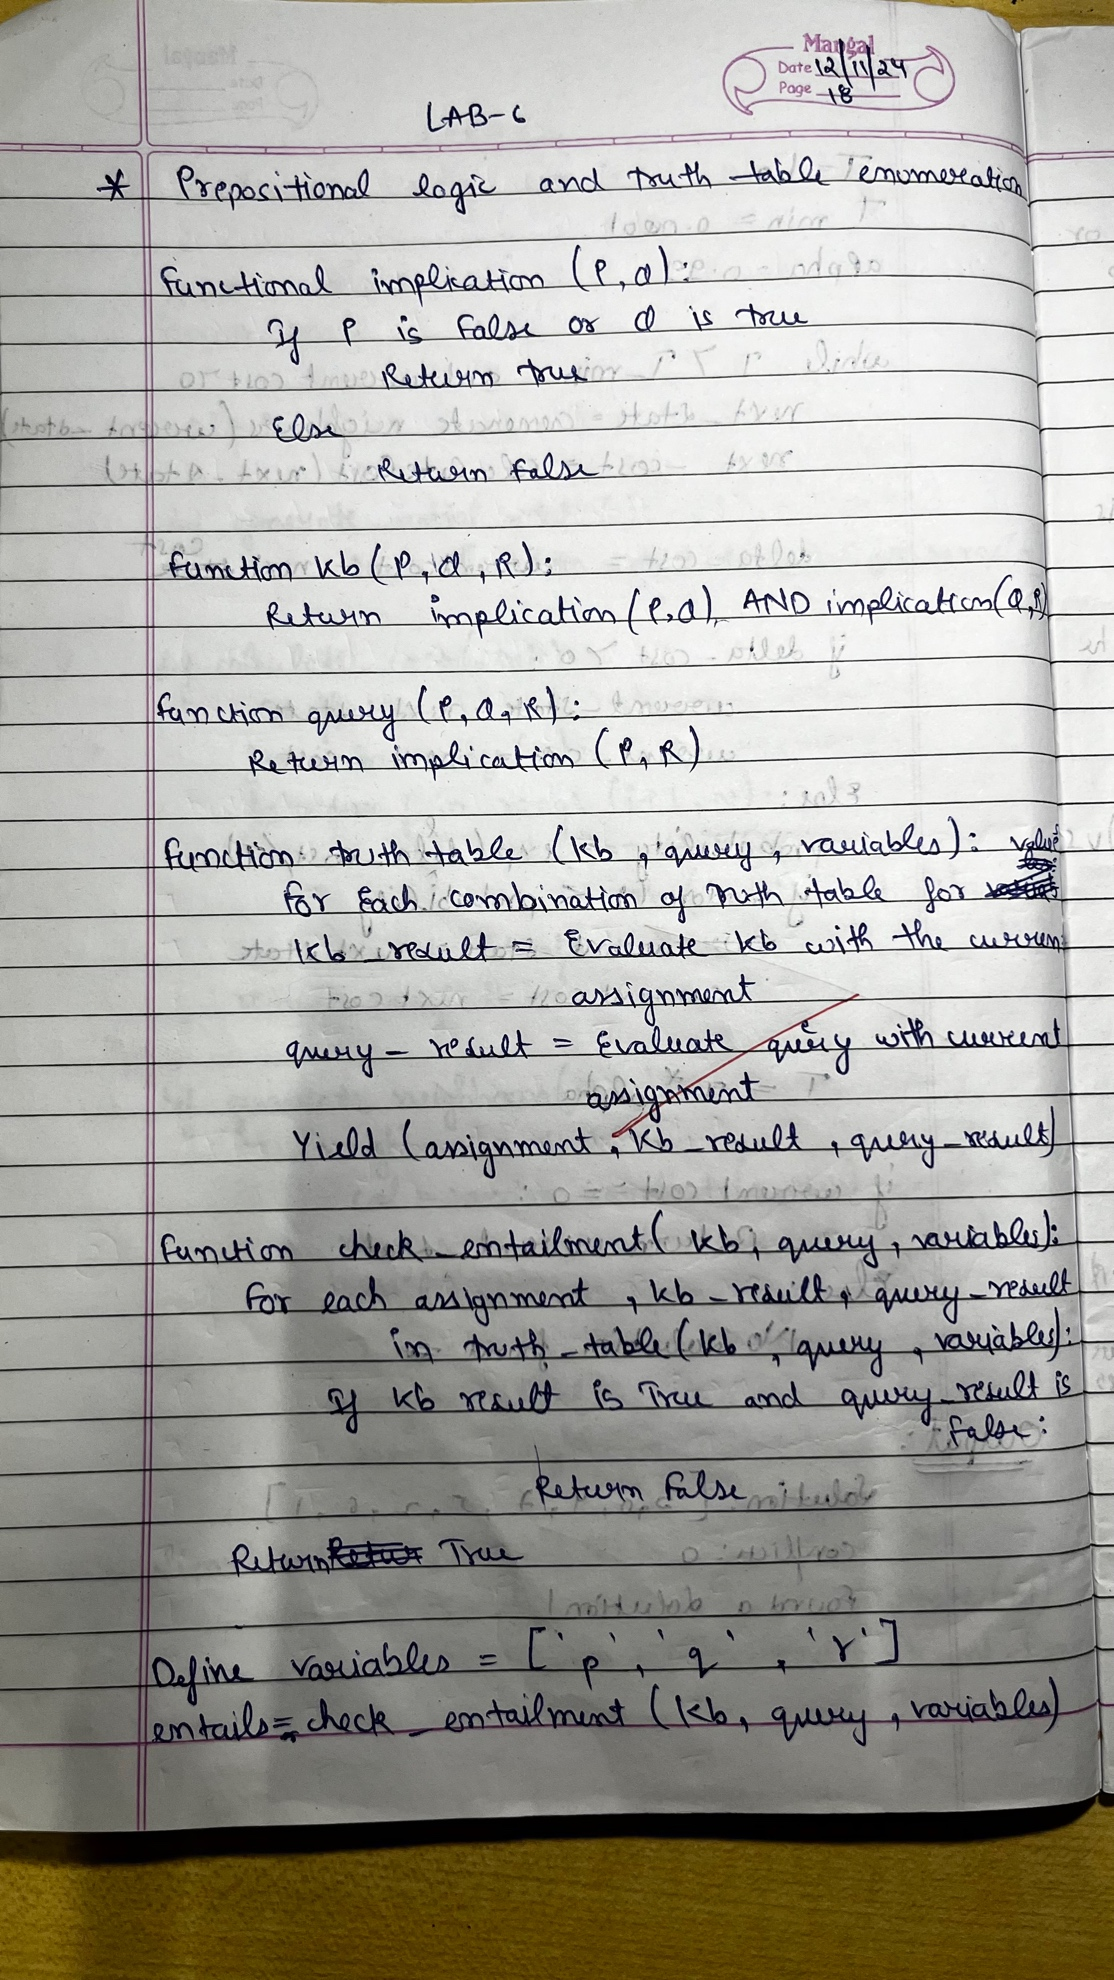 Mangal
Date 12/11/24
Page 18
LAB-6
* Prepositional logic and truth table enumeration
Functional implication (P, Q):
If P is False or Q is true
Return true
Else
Return False
Function Kb (P, Q, R):
Return implication (P, Q) AND implication (Q, R)
Function query (P, Q, R):
Return implication (P, R)
Function truth table (Kb, query, variables):
for Each combination of truth table for value
Kb_result = Evaluate Kb with the curren
assignment
query_result = Evaluate query with current
assignment
Yield (assignment, Kb_result, query_result)
Function check_entailment (Kb, query, variables):
For each assignment, Kb_result, query_result
in truth_table (Kb, query, variables):
If Kb result is True and query_result is
False:
Return False
Return True
Define variables = ['p', 'q', 'r']
entails = check_entailment (Kb, query, variables)